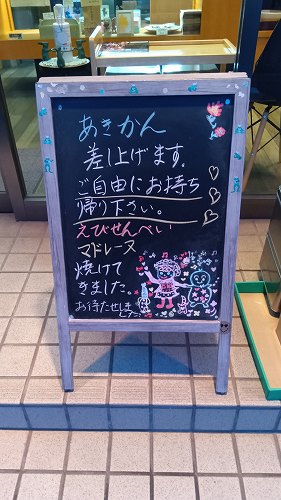 あきかん
差し上げます。
ご自由にお持ち
帰り下さい。
えびせんべい
マドレーヌ
焼けて
きました。
お待たせしま
した!